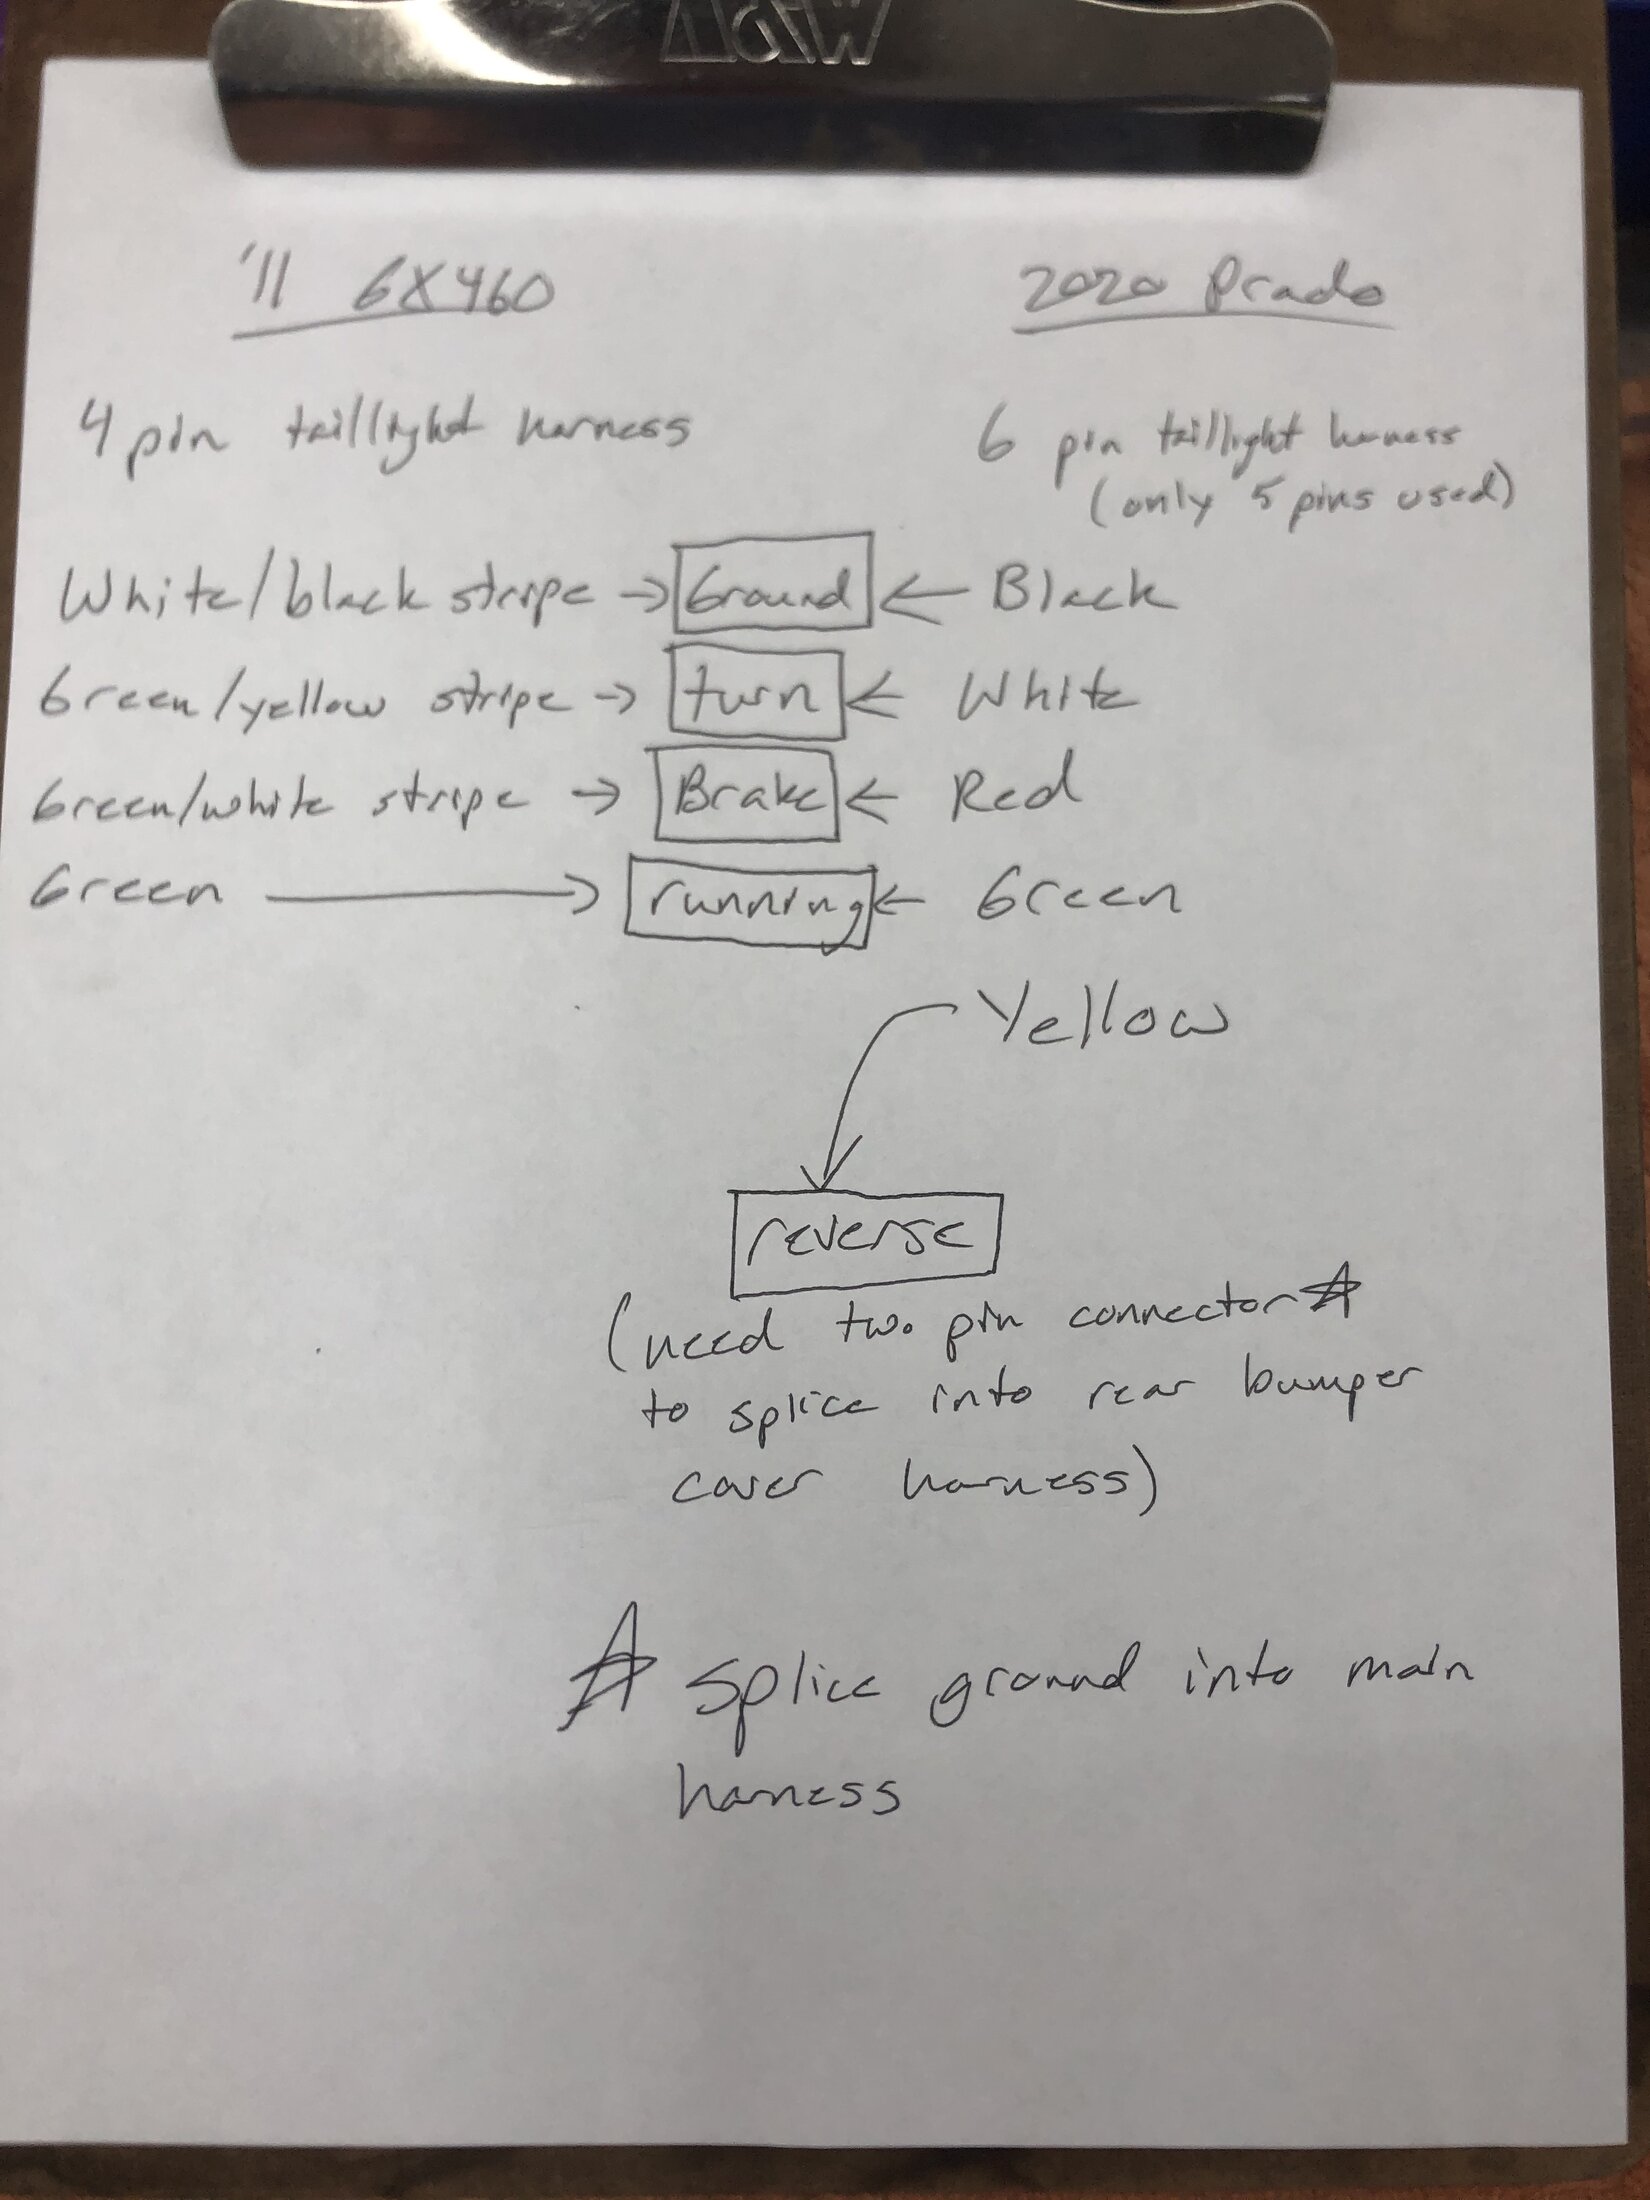 '11 GX460
2020 Prado
4 pin taillight harness
6 pin taillight harness
(only 5 pins used)
White/black stripe → Ground ← Black
Green/yellow stripe → turn ← White
Green/white stripe → Brake ← Red
Green → running ← Green
Yellow
reverse
(need two pin connector ☆
to splice into rear bumper
cover harness)
☆ splice ground into main
harness